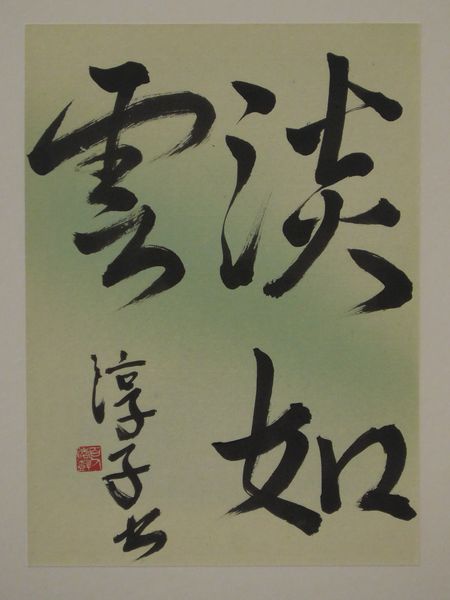 淡如
雲
淳子书